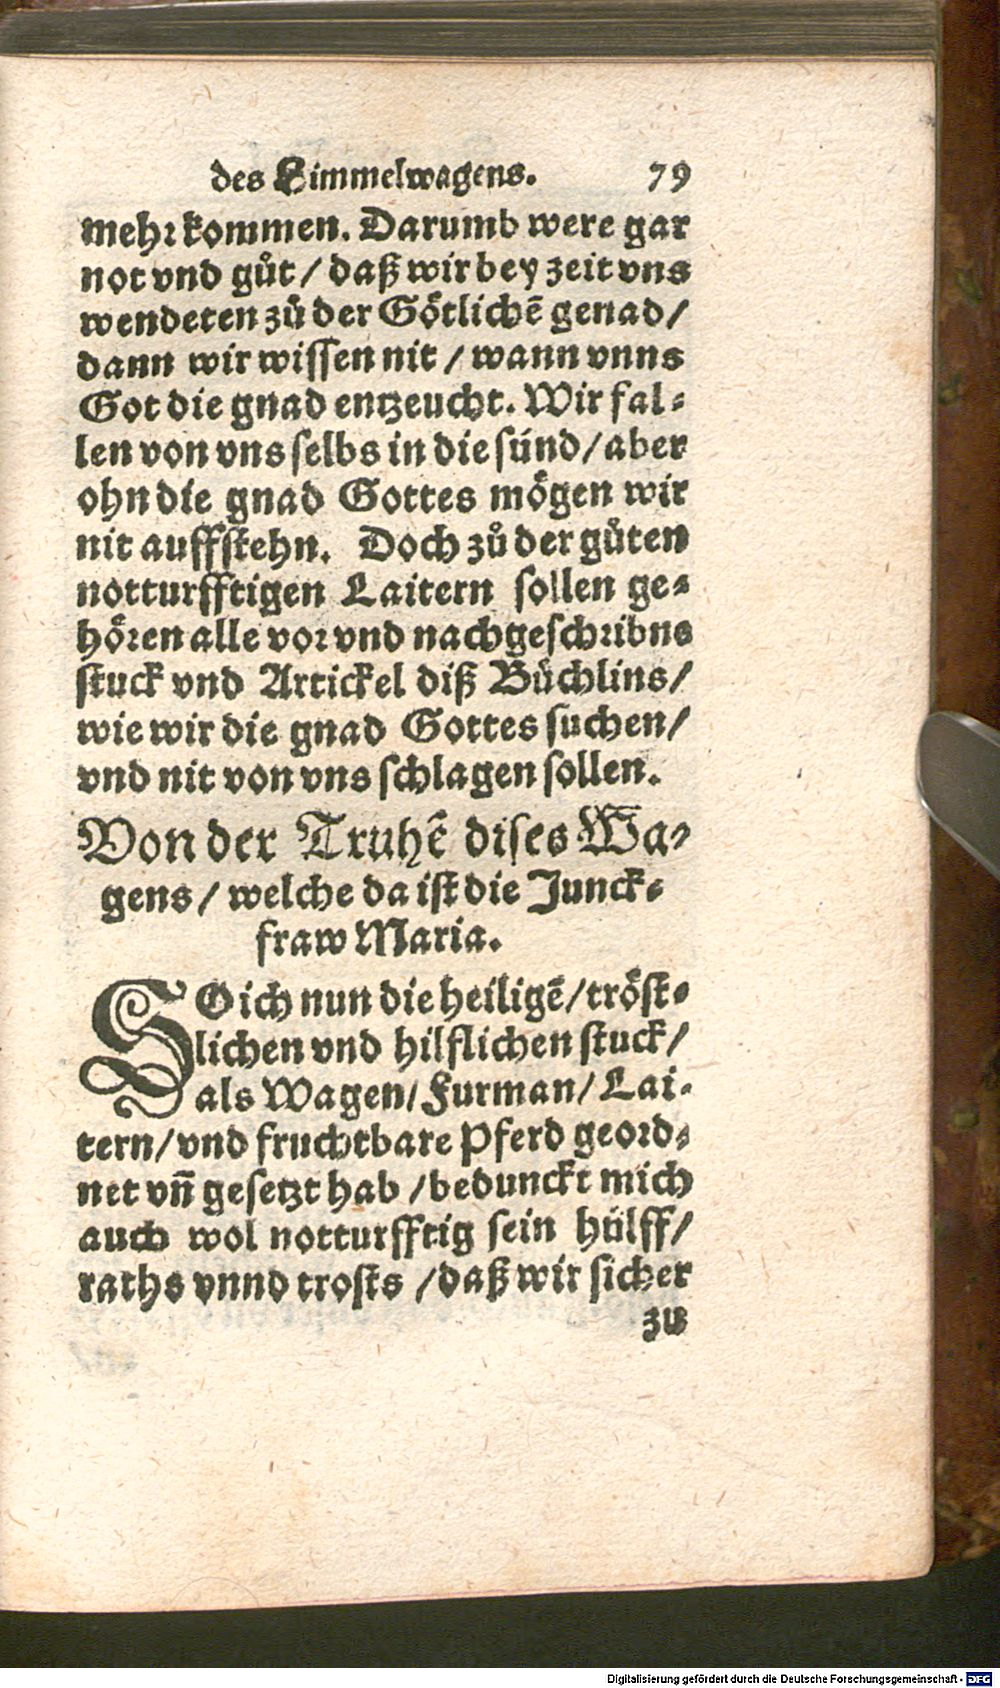 des Himmelwagens. 79
mehr kommen. Darumb were gar
not vnd gůt / daß wir bey zeit vns
wendeten zů der Göttlichē genad /
dann wir wissen nit / wann vnns
Got die gnad entzeucht. Wir fal-
len von vns selbs in die sünd / aber
ohn die gnad Gottes mögen wir
nit auffstehn. Doch zů der gůten
notturfftigen Laitern sollen ge-
hören alle vor vnd nachgeschribne
stuck vnd Artickel diß Büchlins /
wie wir die gnad Gottes suchen /
vnd nit von vns schlagen sollen.
Von der Truhē dises Wa-
gens / welche da ist die Junck-
fraw Maria.
SO ich nun die heiligē / tröst-
lichen vnd hilflichen stuck /
als Wagen / Furman / Lai-
tern / vnd fruchtbare Pferd geord-
net vñ gesetzt hab / bedunckt mich
auch wol notturfftig sein hülff /
raths vnnd trosts / daß wir sicher
zu
Digitalisierung gefördert durch die Deutsche Forschungsgemeinschaft - DFG